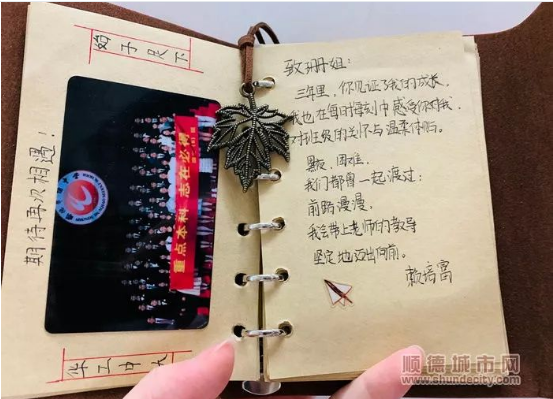 始于足下
期待再次相遇！
重点本科 志在必得
华工中大
致珊姐：
三年里，你见证了我的成长，
我也在每时每刻中感受你对我、
对班级的关怀与温柔体贴。
困难，
我们都曾一起渡过；
前路漫漫，
我会带上老师的教导
坚定地迈出向前。
顺德城市网
www.shundecity.com